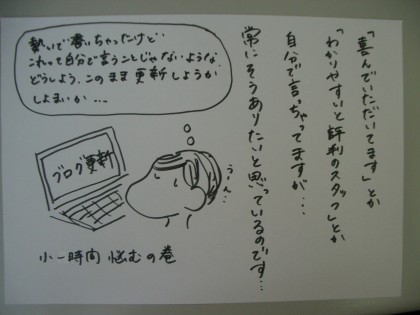 「喜んでいただいてます」とか
「わかりやすいと評判のスタッフ」とか
自分で言っちゃってますが…
常にそうありたいと思っているのです…
勢いで書いちゃったけど
これって自分で言うことじゃないような
どうしよう、このまま更新しようか
しよまいか…
ブログ更新
うーん…
小一時間 悩むの巻